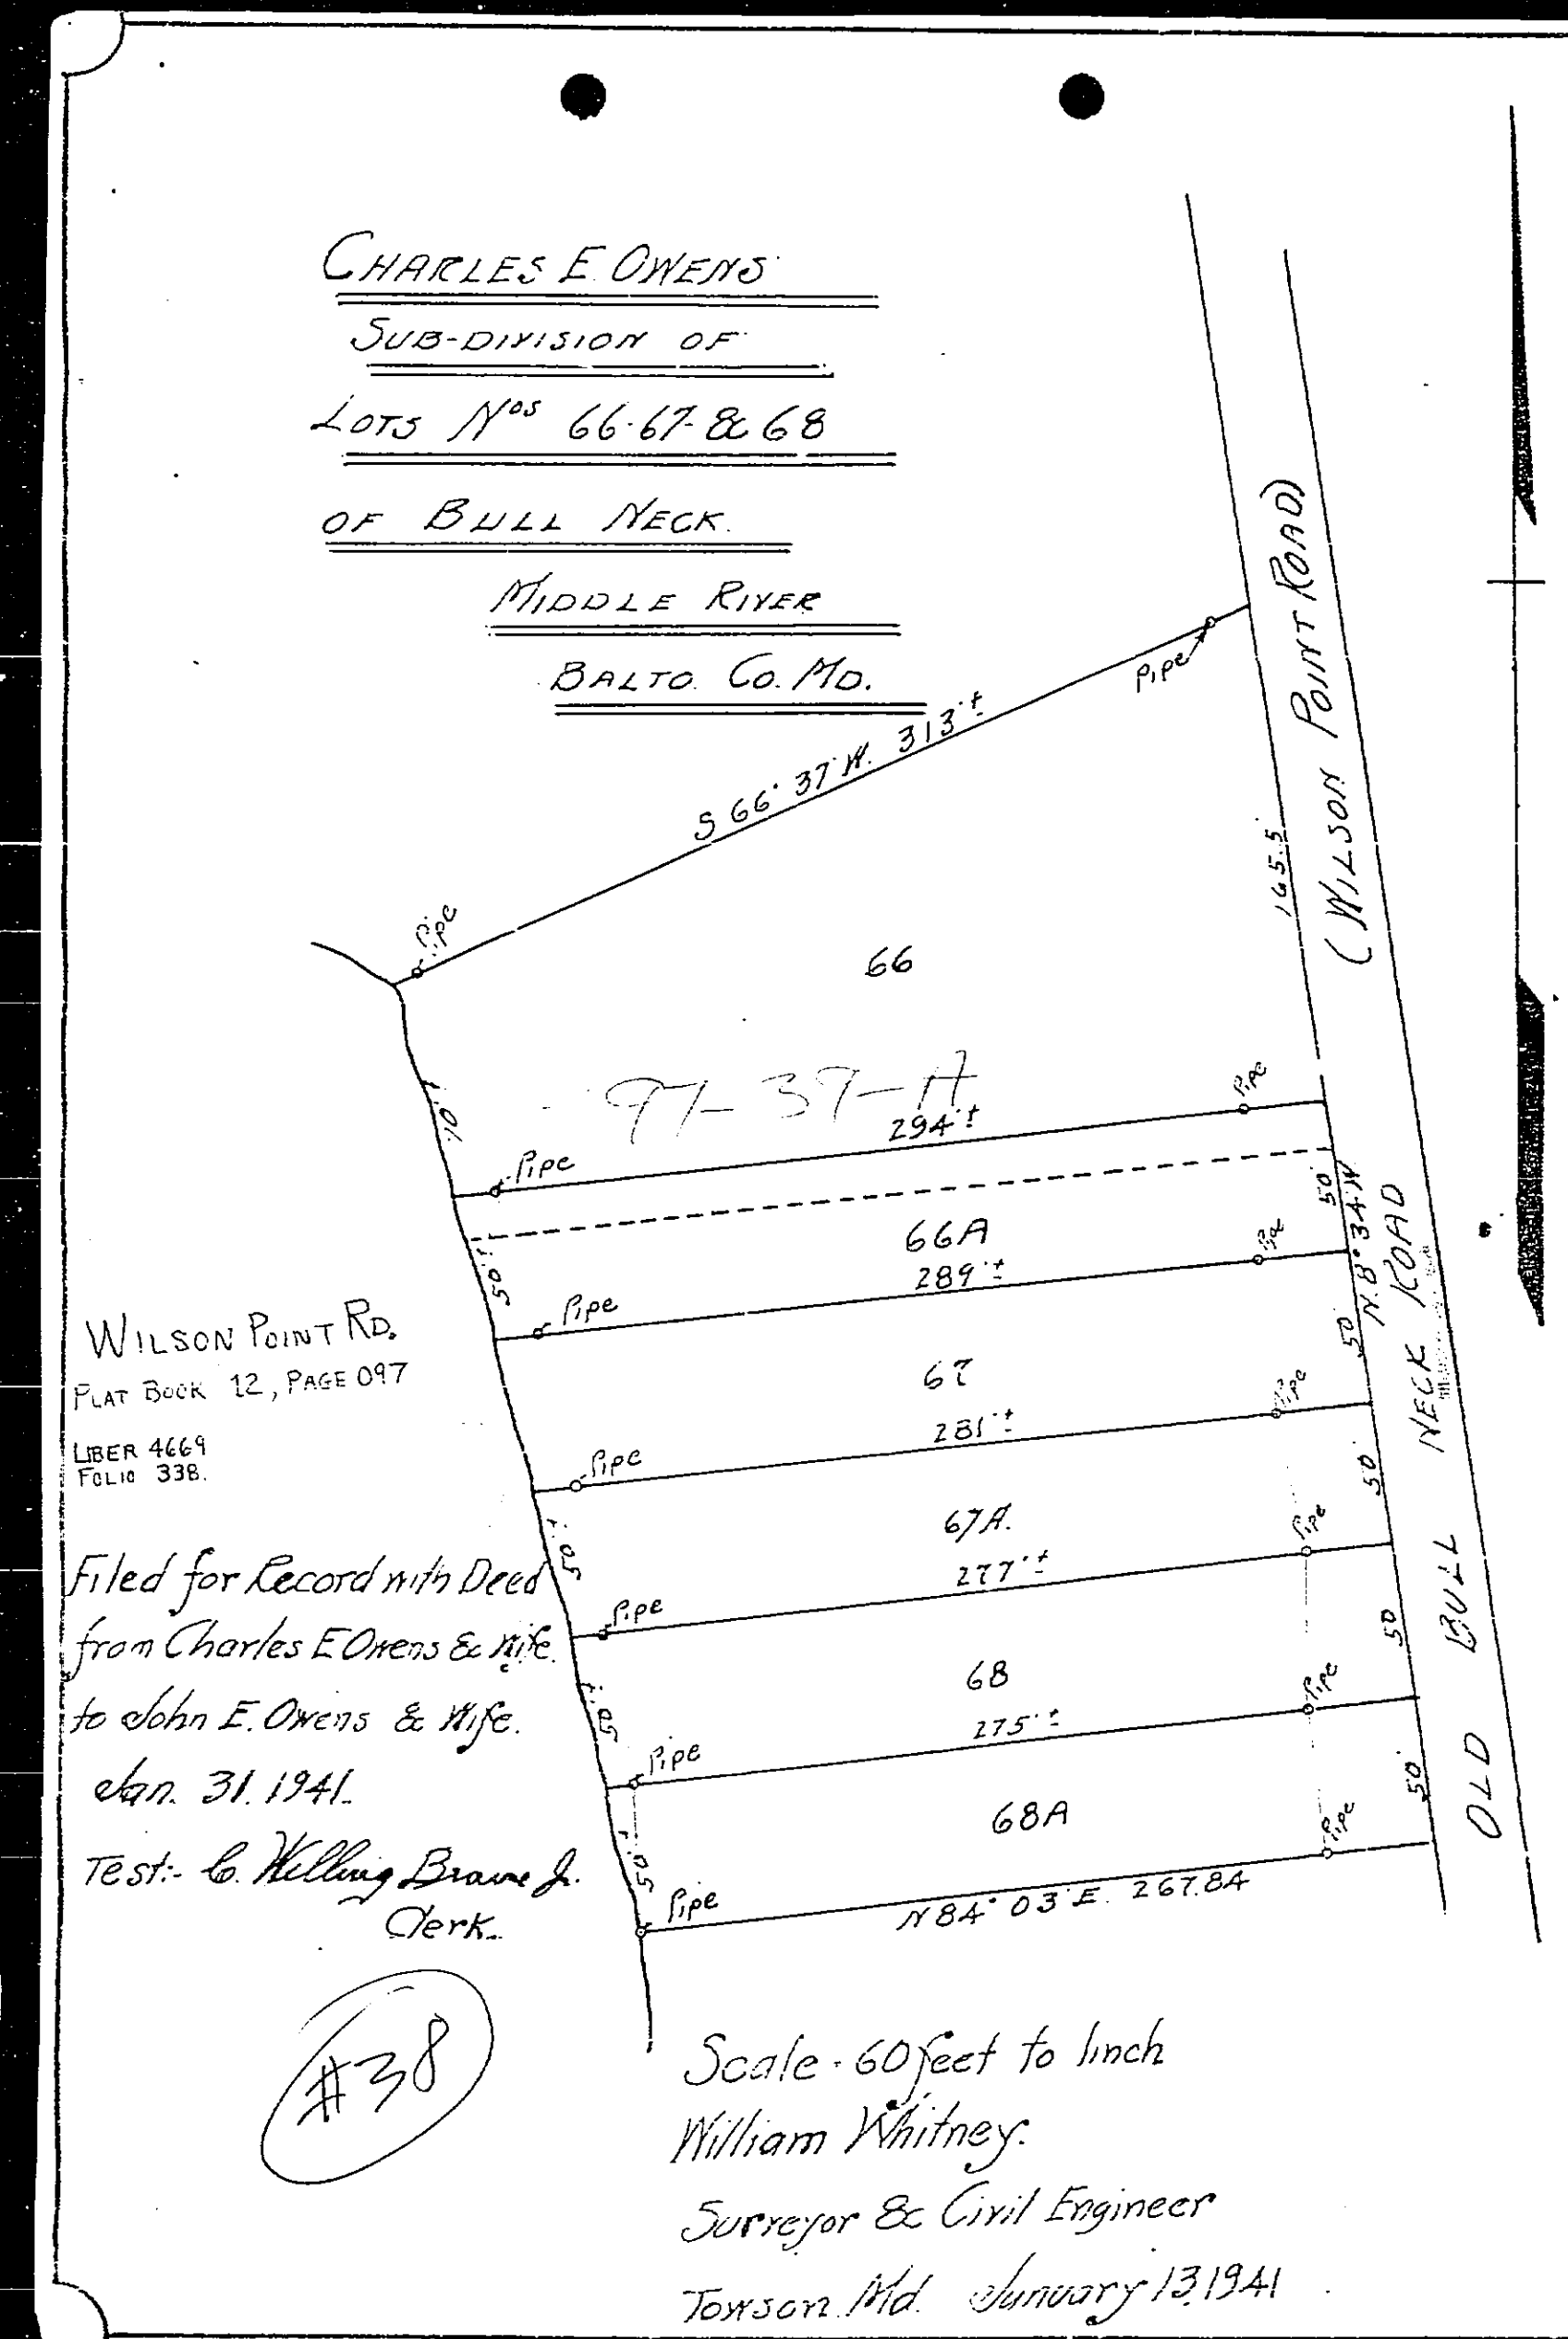 CHARLES E. OWENS
SUB-DIVISION OF
LOTS Nos 66-67-& 68
OF BULL NECK.
MIDDLE RIVER
BALTO. CO. MD.
S 66° 37' W. 313'±
Pipe
Pipe
(WILSON POINT ROAD)
165.5
66
97-37-A
70'±
294'±
Pipe
Pipe
50
N. 8° 34' W
66A
50'±
289'±
Pipe
Pipe
50'
67
281'±
Pipe
Pipe
50'
67A.
50'±
277'±
Pipe
Pipe
50
68
50'±
275'±
Pipe
Pipe
50'
68A
50'±
N 84° 03' E. 267.84
Pipe
Pipe
OLD BULL NECK ROAD
WILSON POINT RD.
PLAT BOOK 12, PAGE 097
LIBER 4669
FOLIO 338.
Filed for Record with Deed
from Charles E Owens & wife.
to John E. Owens & Wife.
Jan. 31. 1941.
Test:- C. Willing Browne Jr.
Clerk.
#38
Scale - 60 feet to 1 inch
William Whitney.
Surveyor & Civil Engineer
Towson. Md. January 13, 1941